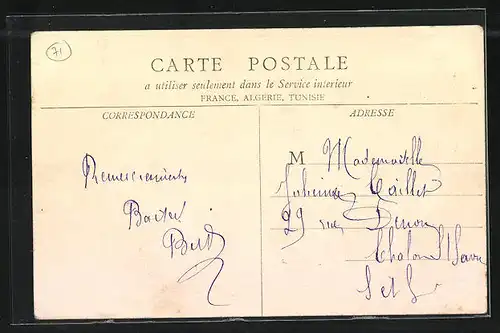 71
CARTE POSTALE
a utiliser seulement dans le Service interieur
FRANCE, ALGÉRIE, TUNISIE
CORRESPONDANCE
ADRESSE
Remerciements
M Mademoiselle
Caillet
29 rue Denon
Chalon s/ Saone
S et L